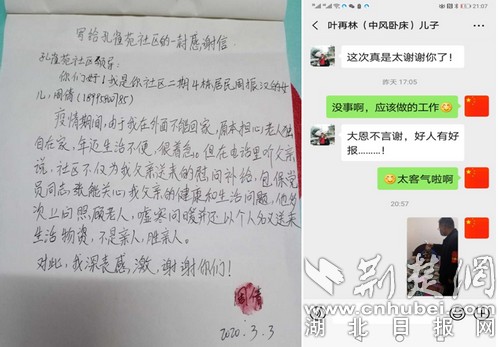 写给孔雀苑社区的一封感谢信
孔雀苑社区领导：
你们好！我是你社区二期4栋居民周报汉的女
儿，周倩
疫情期间，由于我在外面不能回家，原本担心老人独
自在家，年迈生活不便，很着急。但在电话里听父亲
说，社区不仅为我父亲送来的慰问补给，包保党
员同志，我能关心我父亲的健康和生活问题，他多
次上门照顾老人，嘘寒问暖并还以个人名义送来
生活物资，不是亲人，胜亲人。
对此，我深表感激，谢谢你们！
周倩
2020.3.3
21:07
叶再林（中风卧床）儿子
这次真是太谢谢你了！
昨天 17:05
没事啊，应该做的工作
大恩不言谢，好人有好
报………！
太客气啦啊
20:57
荆楚网
www.cnhubei.com
湖北日报网